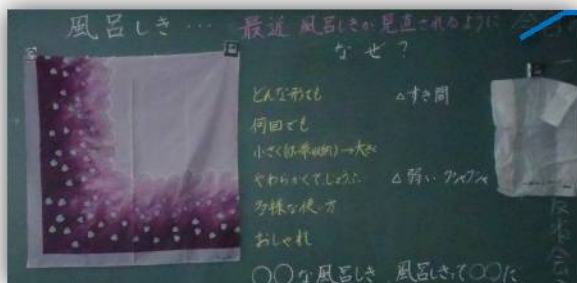 風呂しき… 最近 風呂しきが見直されるように
なぜ？
どんな形でも △すき間
何回でも
小さく →大きく
やわらかくてじょうぶ △弱い クシャクシャ
多様な使い方
おしゃれ
○○な風呂しき 風呂しきって○○だ